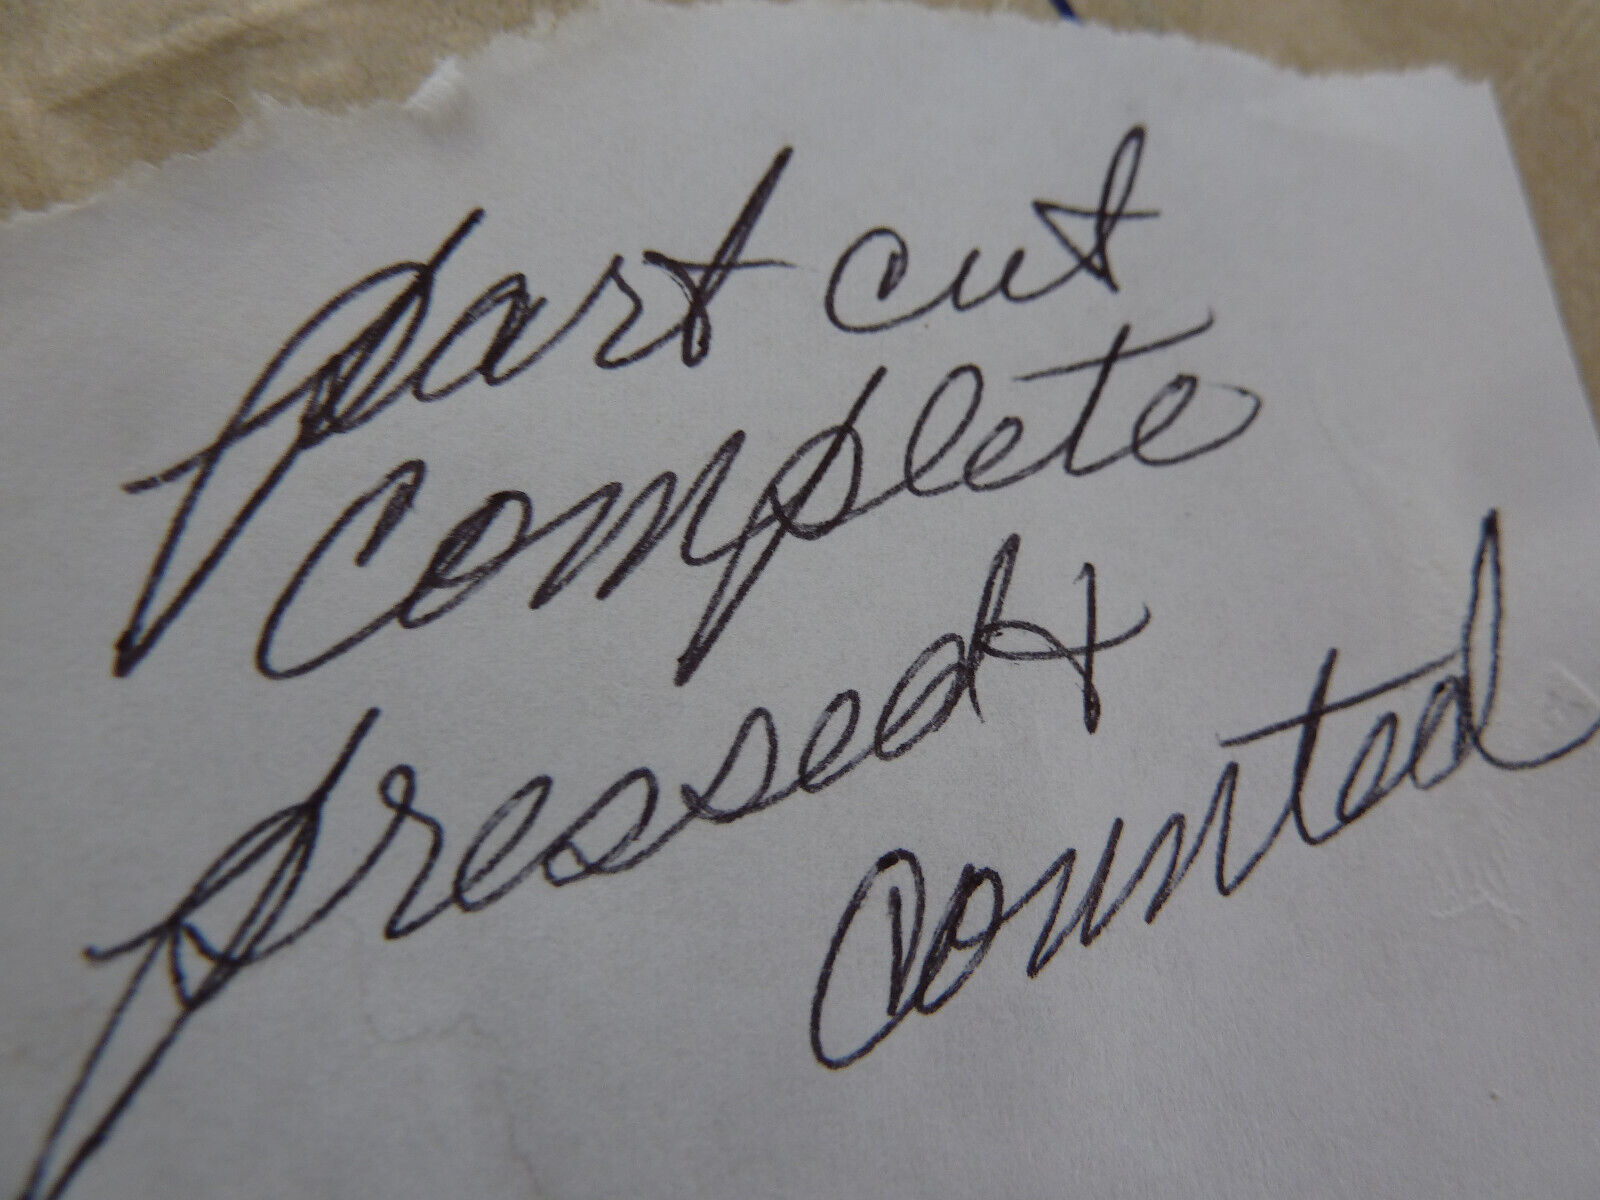 part cut
complete
pressed +
counted